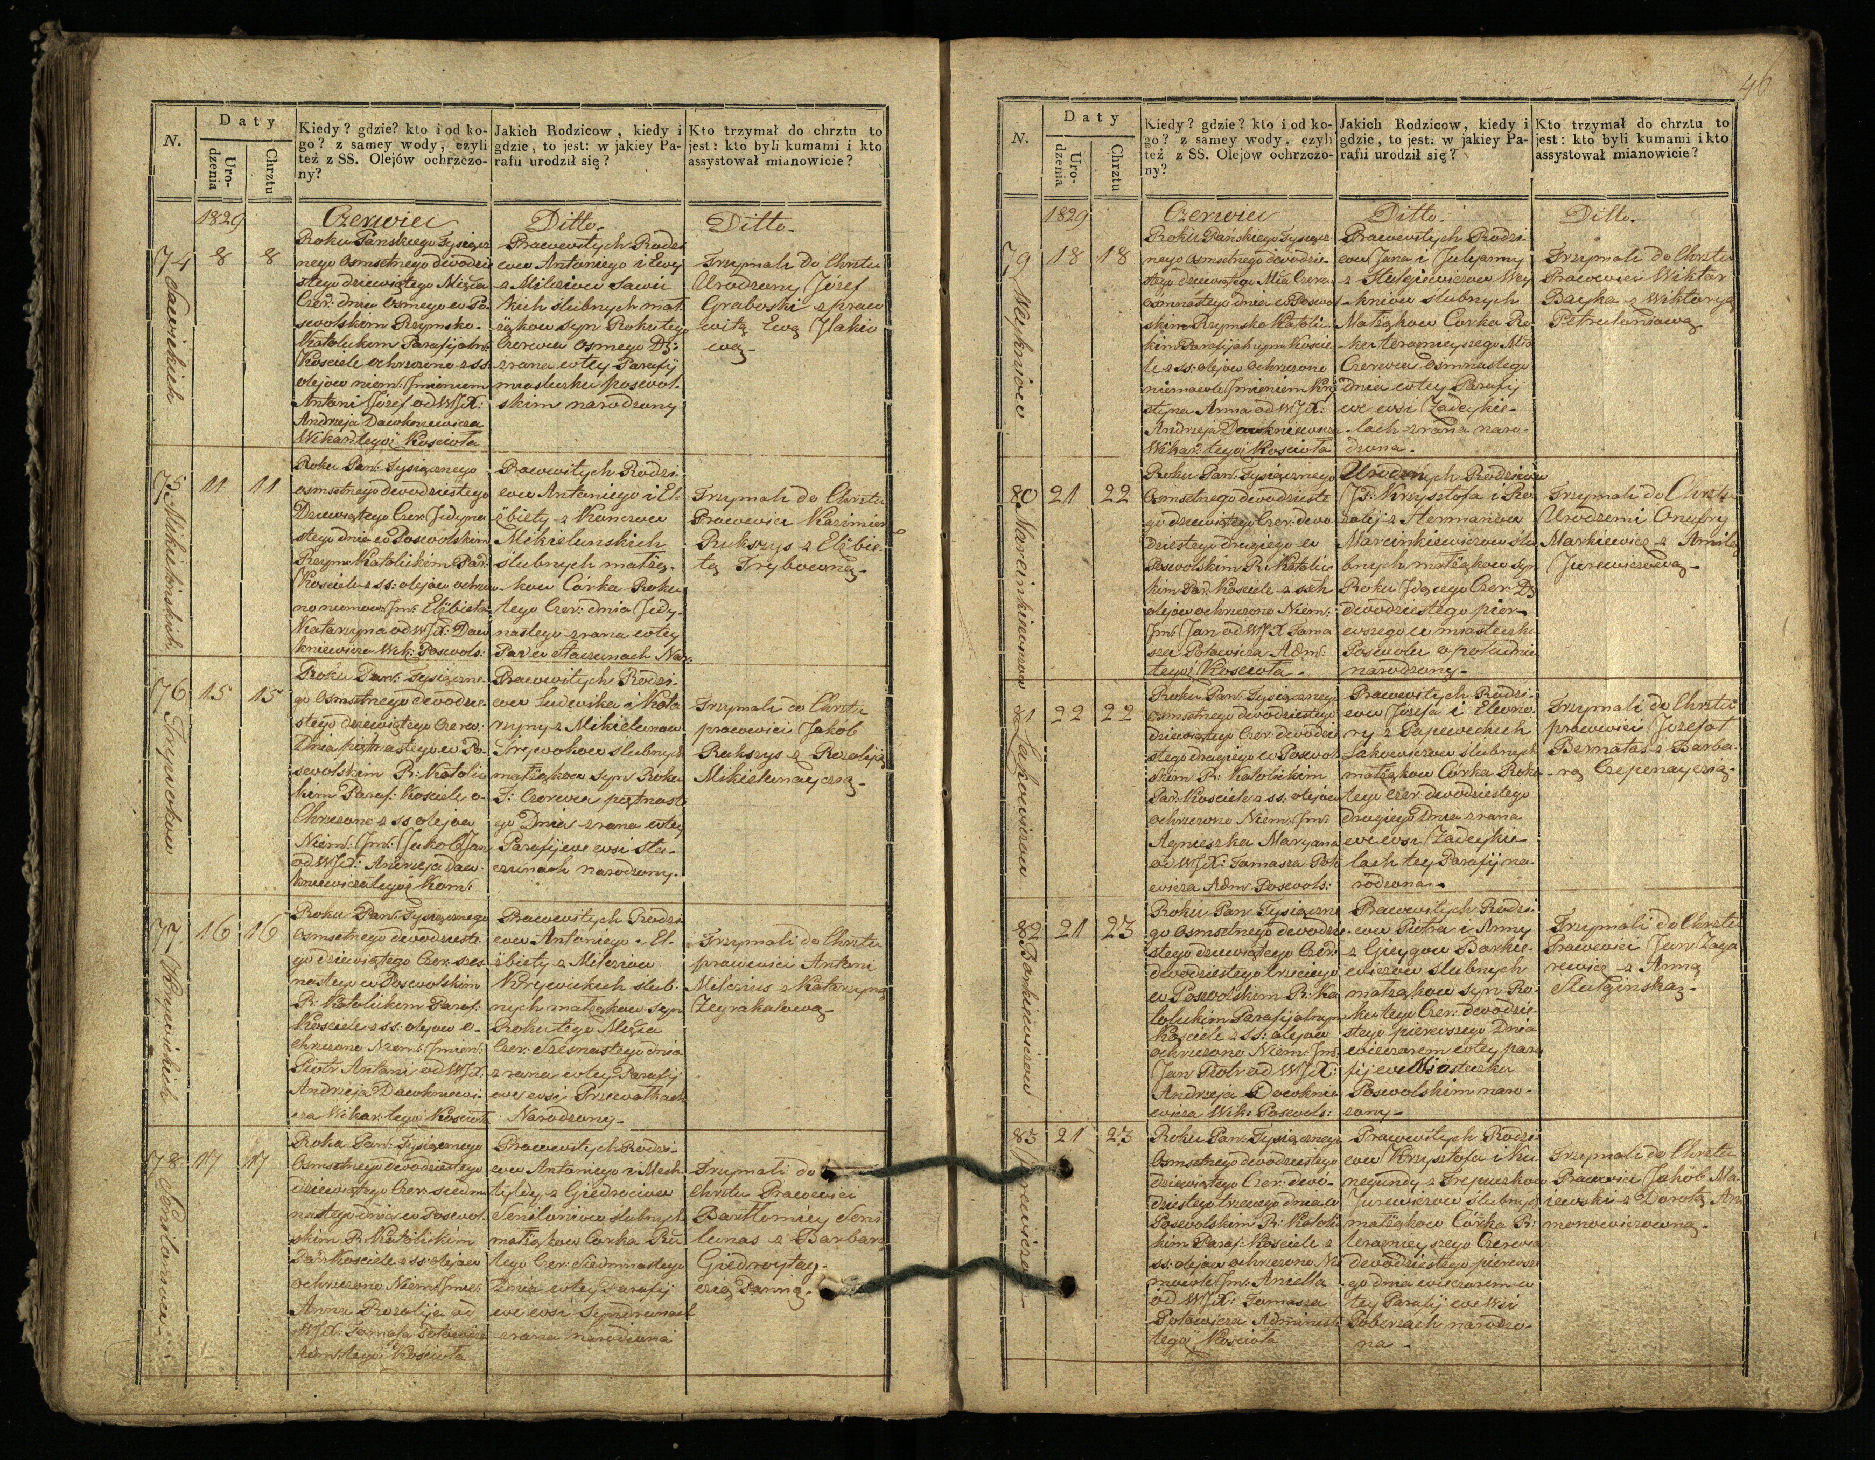 N.
Daty
Urodzenia
Chrztu
Kiedy? gdzie? kto i od ko-
go? z samey wody, czyli
też z SS. Olejów ochrzczo-
ny?
Jakich Rodzicow, kiedy i
gdzie, to jest: w jakiey Pa-
rafii urodził się?
Kto trzymał do chrztu to
jest: kto byli kumami i kto
assystował mianowicie?
1829
Czerwiec
Ditto.
Ditto.
74
Sawickich
8
8
Roku Pańskiego Tysiącz
nego Osmsetnego dwódzie
stego dziewiątego Mśca
Czer: dnia osmego w Po
swolskim Rzymsko-
Katolickim Parafijaln:
Kościele ochrzczono z SS.
olejow niem: Jmieniem
Antoni Józef od WJX:
Andrzeja Dawkniewicza
Wikar: tegoż Kościoła
Prawowitych Rodzi
cow Antoniego i Ewy
z Milczow Sawic
kich ślubnych mał
żąkow syn Roku tego
Czerwca osmego D:
zrana w tey Parafij
miasteczku Poswol
skim narodzony
Trzymali do Chrztu
Urodzony Józef
Graboski z praw
witą Ewą
75
Mikielunskich
11
11
Roku Pań: Tysiącznego
osmsetnego dwódziestego
Dziewiątego Czer: Jedyna
stego dnia w Poswolskim
Rzym: Katolickim Par:
Kościele z SS: olejow ochrzczo
no niemow: Jm: Elżbieta
Katarzyna od WJX: Daw
kniewicza Wik: Poswols:
Prawowitych Rodzi
cow Antoniego i El
żbiety z
Mikielunskich
ślubnych małżą-
kow Córka Roku
tego Czer: dnia Jedy
nastego zrana w tey
Par: w Staczunach Nar:
Trzymali do Chrztu
Prawowici Kazimierz
Pukszys z Elżbie
tą Trybowną
76
15
15
Roku Pań: Tysiączne
go Osmsetnego dwódzie
stego dziewiątego Czerw:
Dnia piętnastego w Po
swolskim R: Katolic
kim Paraf: Kościele o-
Chrzczono z SS olejow
Niem: Jm: Jakob Jan
od WJX: Andrzeja Daw
kniewicza tegoż Kom:
Prawowitych Rodzi
cow Ludwika i Kata
rzyny z Mikielunow
ślubnych
małżąkow syn Roku
T: Czerwca piętnaste
go Dnia zrana w tey
Parafij we wsi Sta-
czunach narodzony
Trzymali do Chrztu
prawowici Jakób
Pukszys z Rozaliją
77
16
16
Roku Pań: Tysiącznego
Osmsetnego dwódzieste
go dziewiątego Czer: szes
nastego w Poswolskim
R: Katolickim Paraf:
Kościele z SS: olejow o-
chrzczono Niem: Jmien:
Piotr Antoni od WJX:
Andrzeja Dawkniewi
cza Wikar: tego Kościoła
Prawowitych Rodzi
cow Antoniego i El-
żbiety z Milczow
ślub-
nych małżąkow syn
Roku tego Mśca
Czer: Szesnastego dnia
zrana w tey Parafij
we wsi
Narodzony
Trzymali do Chrztu
prawowici Antoni
z Katarzyną
78
Senilaniow
17
17
Roku Pań: Tysiącznego
Osmsetnego dwódziestego
dziewiątego Czer: siedm
nastego dnia w Poswol
skim R: Katolickim
Par: Kościele z SS: olejow
ochrzczono Niem: Jmie:
Anna Rozalija od
WJX: Tomasza Polowicza
Adm: tegoż Kościoła
Prawowitych Rodzi-
cow Antoniego i
z Giedrociow
ślubnych
małżąkow Corka Ro
tego Czer: Siedmnastego
Dnia w tey Parafij
we wsi
zrana narodzona
Trzymali do
Chrztu Prawowici
Bartłomiey
z Barbarą
Panną
46
N.
Daty
Urodzenia
Chrztu
Kiedy? gdzie? kto i od ko-
go? z samey wody, czyli
też z SS. Olejów ochrzczo-
ny?
Jakich Rodzicow, kiedy i
gdzie, to jest: w jakiey Pa-
rafii urodził się?
Kto trzymał do chrztu to
jest: kto byli kumami i kto
assystował mianowicie?
1829
Czerwiec
Ditto.
Ditto.
79
Weykniow
18
18
Roku Pańskiego Tysiącz
nego osmsetnego dwódzie
stego dziewiątego Mśca Czerw:
osmnastego dnia w Poswol
skim Rzymsko Katolic
kim Parafijalnym Koscie
le z SS: olejow ochrzczono
niemowle Jmieniem Kry
styna Anna od WJX:
Andrzeja Dawkniewicza
Wikar: tegoż Kościoła
Prawowitych Rodzi
cow Jana i Julijanny
z Wey
kniow ślubnych
Małżąkow Corka Ro
ku teraznieyszego Mśca
Czerwca Osmnastego
Dnia w tey Parafij
we wsi Zadeykie-
lach zrana naro
dzona.
Trzymali do Chrztu
Prawowici Wiktor
z Wiktoryą
80
Marcinkiewiczow
21
22
Roku Pań: Tysiącznego
Osmsetnego dwódzieste
go dziewiątego Czer: dwó
dziestego drugiego w
Poswolskim R: Katolic
kim Par: Kościele z SSch
olejow ochrzczono Niem:
Jm: Jan od WJX Toma
sza Polowicza Adm:
tegoż Kościoła.
Urodzonych Rodzicow
JP: Krzysztofa i Ro
zalij z Hermanow
Marcinkiewiczow ślu
bnych małżąkow syn
Roku Jdącego Czer: D:
dwódziestego pier-
wszego w miasteczku
Poswolu o południu
narodzony.
Trzymali do Chrztu
Urodzeni Onufry
Markiewicz z Amilą
Jurewiczową
81
22
22
Roku Pań: Tysiącznego
osmsetnego dwódziestego
dziewiątego Czer: dwódzie
stego drugiego w Poswol
skim R: Katolickim
Par: Kościele z SS: olejow
ochrzczono Niem: Jm:
Agnieszka Maryana
od WJX: Tomasza Polo
wicza Adm: Poswols:
Prawowitych Rodzi
cow Józefa i Eleono
ry z
ślubnych
małżąkow Córka Roku
tego Czer: dwódziestego
drugiego Dnia zrana
we wsi Zadeykie-
lach tey Parafij na-
rodzona.
Trzymali do Chrztu
prawowici Józefat
Bernatas z Barba-
rą
82
Bankiewiczow
21
23
Roku Pań: Tysiączne
go Osmsetnego dwódzie
stego dziewiątego Czer:
dwódziestego trzeciego
w Poswolskim R: Ka
tolickim Parafijalnym
Kościele z SS: olejow
ochrzczono Niem: Jm:
Jan Piotr od WJX:
Andrzeja Dawknie
wicza Wik: Poswols:
Prawowitych Rodzi
cow Piotra i Anny
z
ślubnych
małżąkow syn Ro-
ku tego Czer: dwódzie
stego pierwszego Dnia
wieczorem w tey para
fij we Miasteczku
Poswolskim naro-
dzony.
Trzymali do Chrztu
Prawowici Jan
z Anną
83
Jurewiczow
21
23
Roku Pań: Tysiącznego
Osmsetnego dwódziestego
dziewiątego Czer: dwó-
dziestego trzeciego dnia w
Poswolskim R: Katolic
kim Paraf: Kościele z
SS: olejow ochrzczono Nie
mowle Jm: Aniella
od WJX: Tomasza
Polowicza Administ:
tegoż Kościoła
Prawowitych Rodzi
cow Krzysztofa i Ku
negundy z
Jurewiczow ślubnych
małżąkow Córka R:
teraznieyszego Czerwca
dwódziestego pierwsze
go dnia wieczorem w
tey Parafij we Wsi
Poberzach narodzo
na.
Trzymali do Chrztu
Prawowici Jakób Ma-
iewski z Dorotą